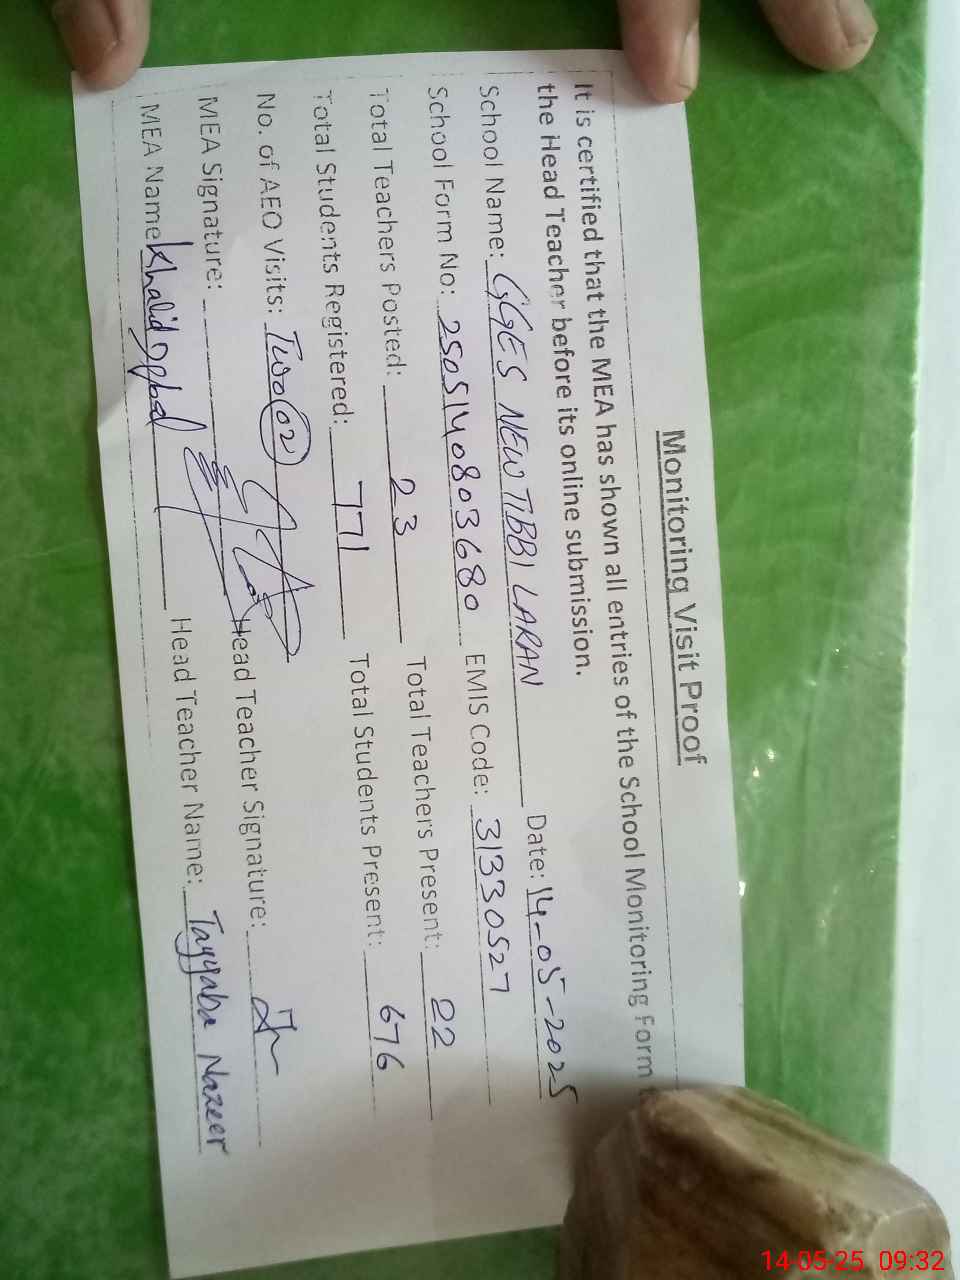 Monitoring Visit Proof
It is certified that the MEA has shown all entries of the School Monitoring Form
the Head Teacher before its online submission.
School Name: GGES NEW TIBBI LARAN Date: 14-05-2025
School Form No: 2505140803680 EMIS Code: 31330527
Total Teachers Posted: 23 Total Teachers Present: 22
Total Students Registered: 771 Total Students Present: 676
No. of AEO Visits: Two 02
MEA Signature: Head Teacher Signature:
MEA Name Khalid Iqbal Head Teacher Name: Tayyaba Nazeer
14-05-25 09:32